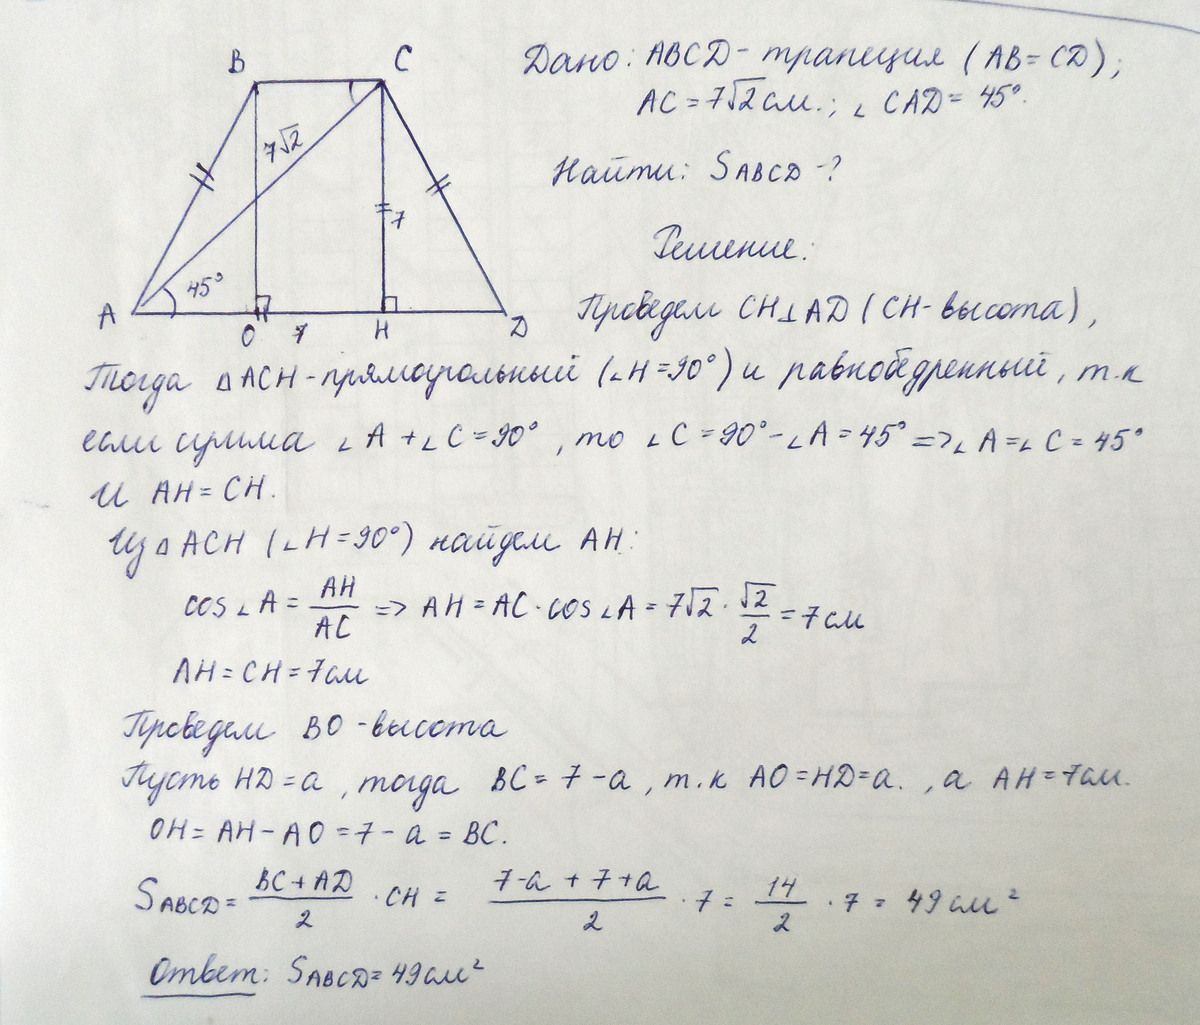 Дано: ABCD - трапеция (AB = CD);
AC = 7√2 см.; ∠ CAD = 45°.
Найти: SABCD - ?
Решение:
Проведем CH⊥AD (CH - высота),
Тогда △ACH - прямоугольный (∠H = 90°) и равнобедренный, т.к
если сумма ∠A + ∠C = 90°, то ∠C = 90° - ∠A = 45° => ∠A = ∠C = 45°
И AH = CH.
Из △ACH (∠H = 90°) найдем AH:
cos∠A = AH/AC => AH = AC · cos∠A = 7√2 · √2/2 = 7 см
AH = CH = 7 см
Проведем BO - высота
Пусть HD = a, тогда BC = 7 - a, т.к AO = HD = a., а AH = 7 см.
OH = AH - AO = 7 - a = BC.
SABCD = (BC + AD)/2 · CH = (7-a + 7+a)/2 · 7 = 14/2 · 7 = 49 см²
Ответ: SABCD = 49 см²
B
C
7√2
7
45°
A
O
7
H
D